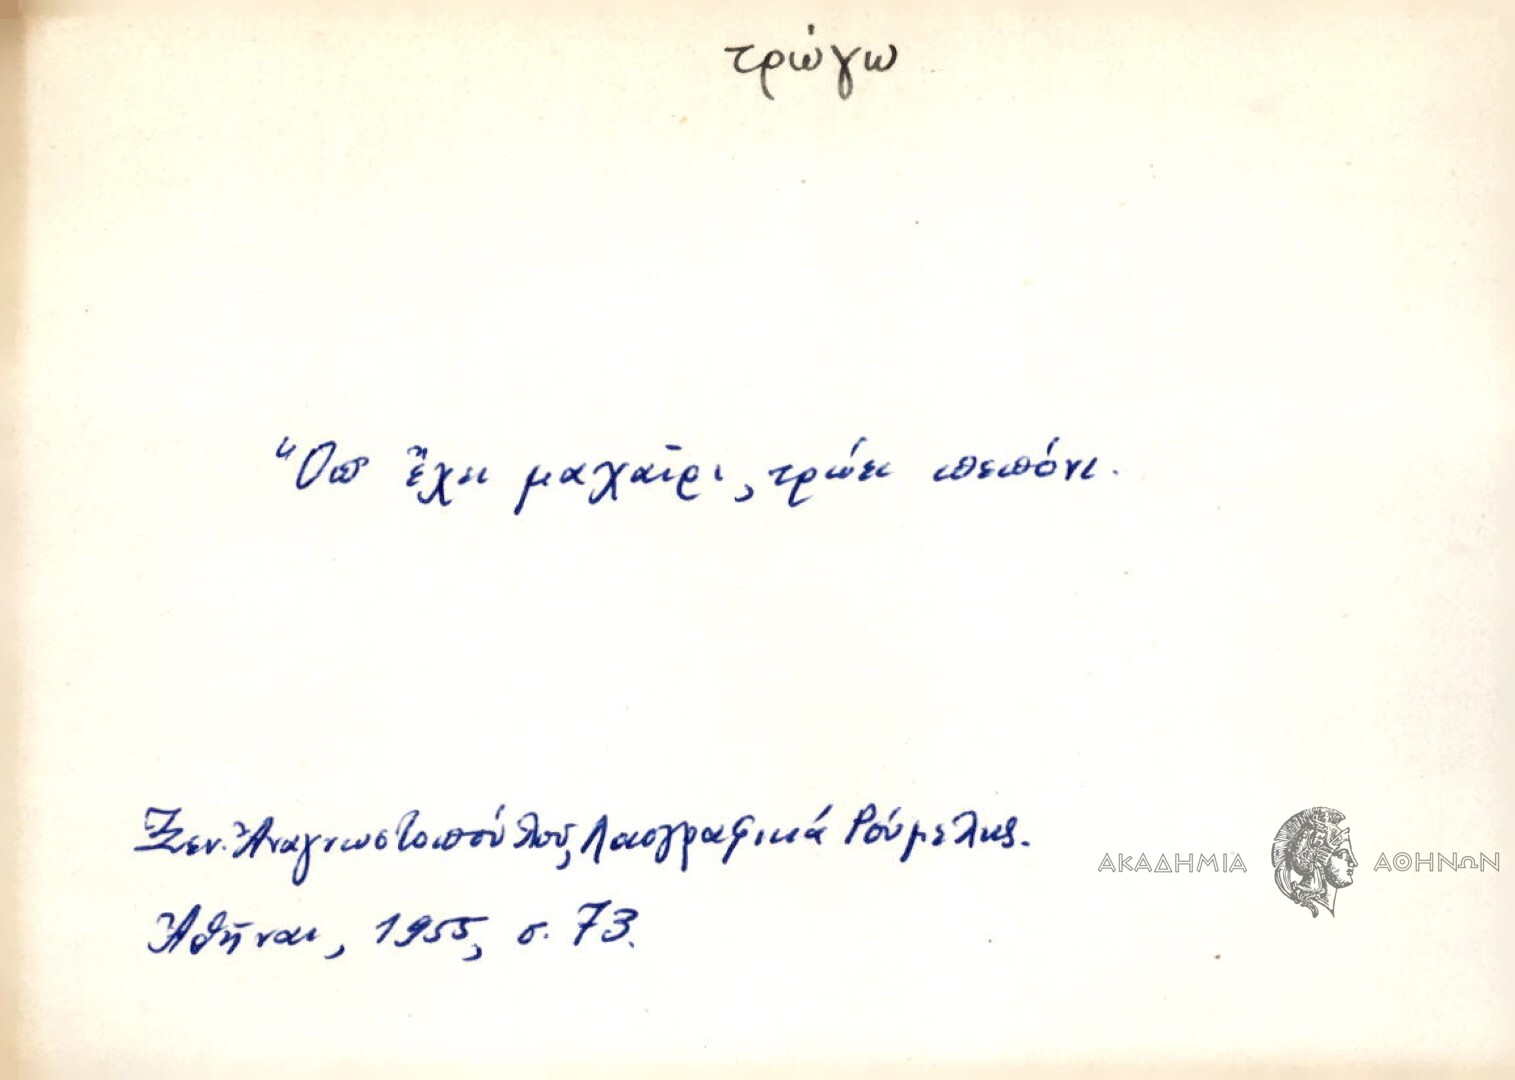 τρώγω
Ὅπ' ἔχει μαχαῖρι, τρώει πεπόνι.
Ξεν. Ἀναγνωστοπούλου, Λαογραφικά Ρούμελης.
Ἀθῆναι, 1955, σ. 73.
ΑΚΑΔΗΜΙΑ ΑΘΗΝΩΝ